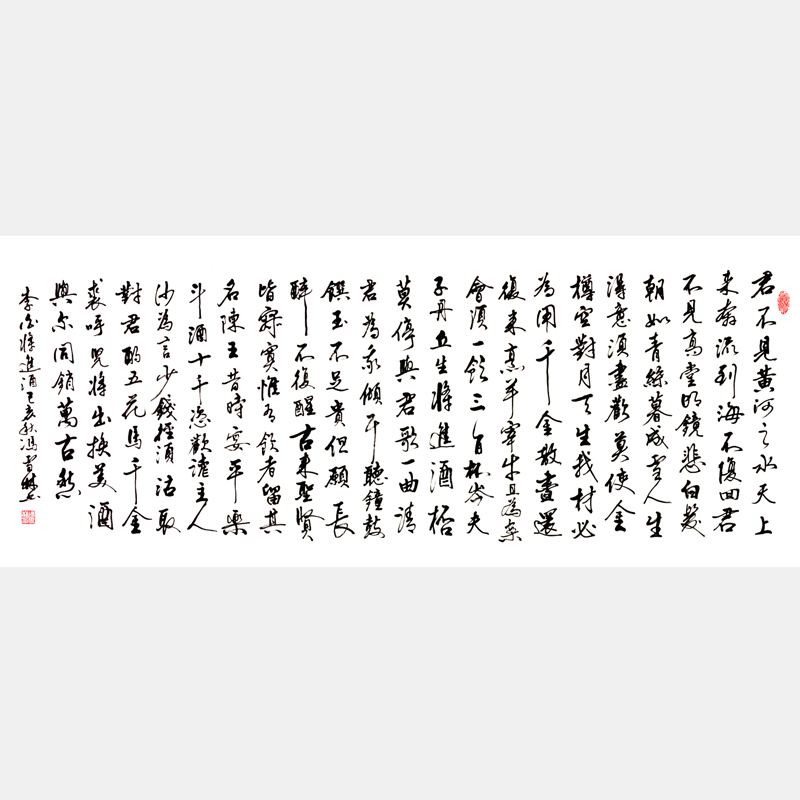 君不見黃河之水天上
来奔流到海不復回君
不見高堂明鏡悲白髮
朝如青絲暮成雪人生
得意須盡歡莫使金
樽空對月天生我材必
為用千金散盡還
復来烹羊宰牛且為樂
會須一飲三百杯岑夫
子丹丘生將進酒杯
莫停與君歌一曲請
君為我傾耳聽鐘鼓
饌玉不足貴但願長
醉不復醒古来聖賢
皆寂寞惟有飲者留其
名陳王昔時宴平樂
斗酒十千恣歡謔主人
何為言少錢徑須沽取
對君酌五花馬千金
裘呼兒將出換美酒
與尔同銷萬古愁
李白將進酒己亥秋馮雪